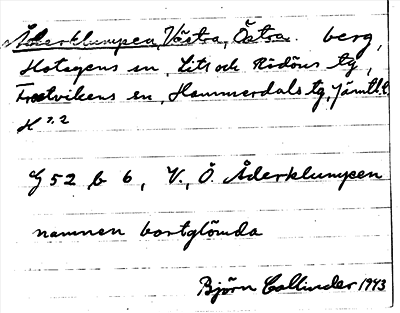 Åderklumpen, Västra, Östra. berg,
Hotagens sn, Lits och Rödöns tg,
Frostvikens sn, Hammerdals tg, Jämtl. l.
H 7.2
G 52 b 6, V., Ö. Åderklumpen
namnen bortglömda
Björn Collinder 1943